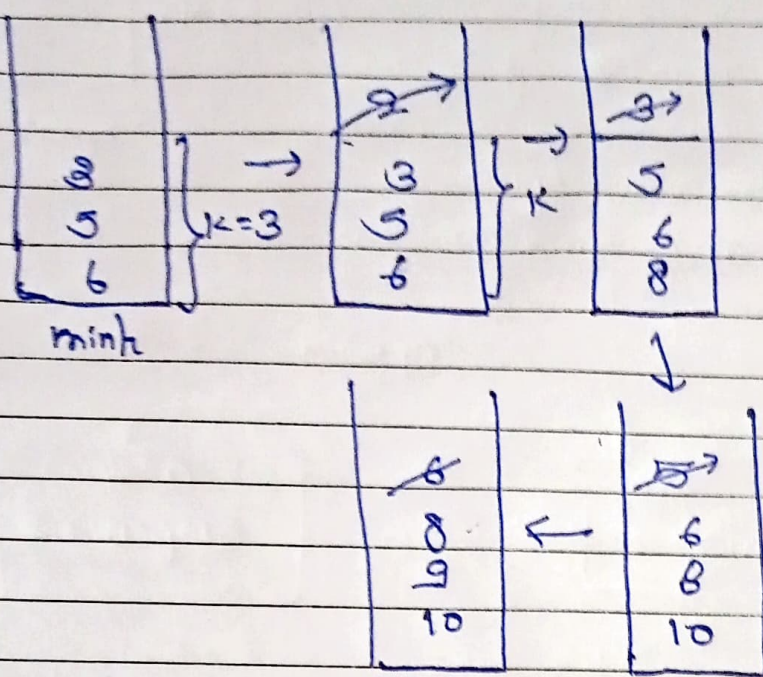 3
5
6
K=3
minh
2
3
5
6
K
3
5
6
8
5
6
8
10
6
8
9
10